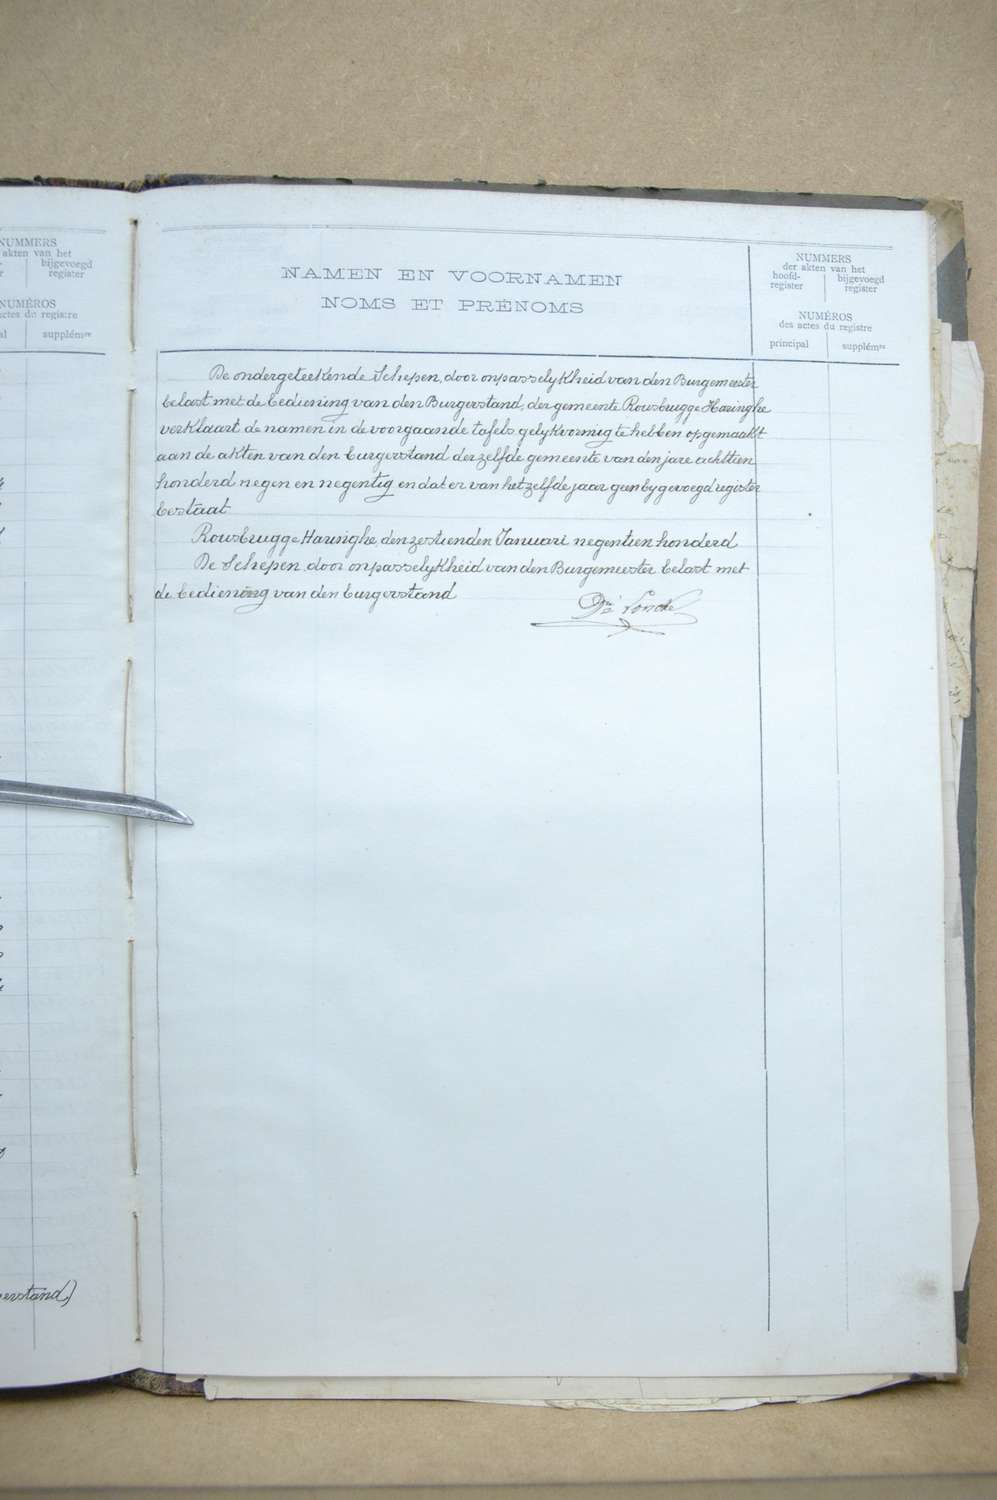 NUMMERS
akten van het
bijgevoegd
register
NUMÉROS
actes du registre
supplém^re
erstand)
NAMEN EN VOORNAMEN
NOMS ET PRÉNOMS
NUMMERS
der akten van het
hoofd-
register
bijgevoegd
register
NUMÉROS
des actes du registre
principal
supplém^re
De ondergeteekende Schepen, door onpasselykheid van den Burgemeester
belast met de bediening van den Burgerstand, der gemeente Rousbrugge Haringhe
verklaart de namen in de voorgaande tafels gelykvormig te hebben opgemaakt
aan de akten van den burgerstand derzelfde gemeente van den jare achttien
honderd negen en negentig en dat er van hetzelfde jaar geen bygevoegd register
bestaat
Rousbrugge Haringhe, den zestienden Januari negentien honderd
De Schepen, door onpasselykheid van den Burgemeester belast met
de bediening van den burgerstand